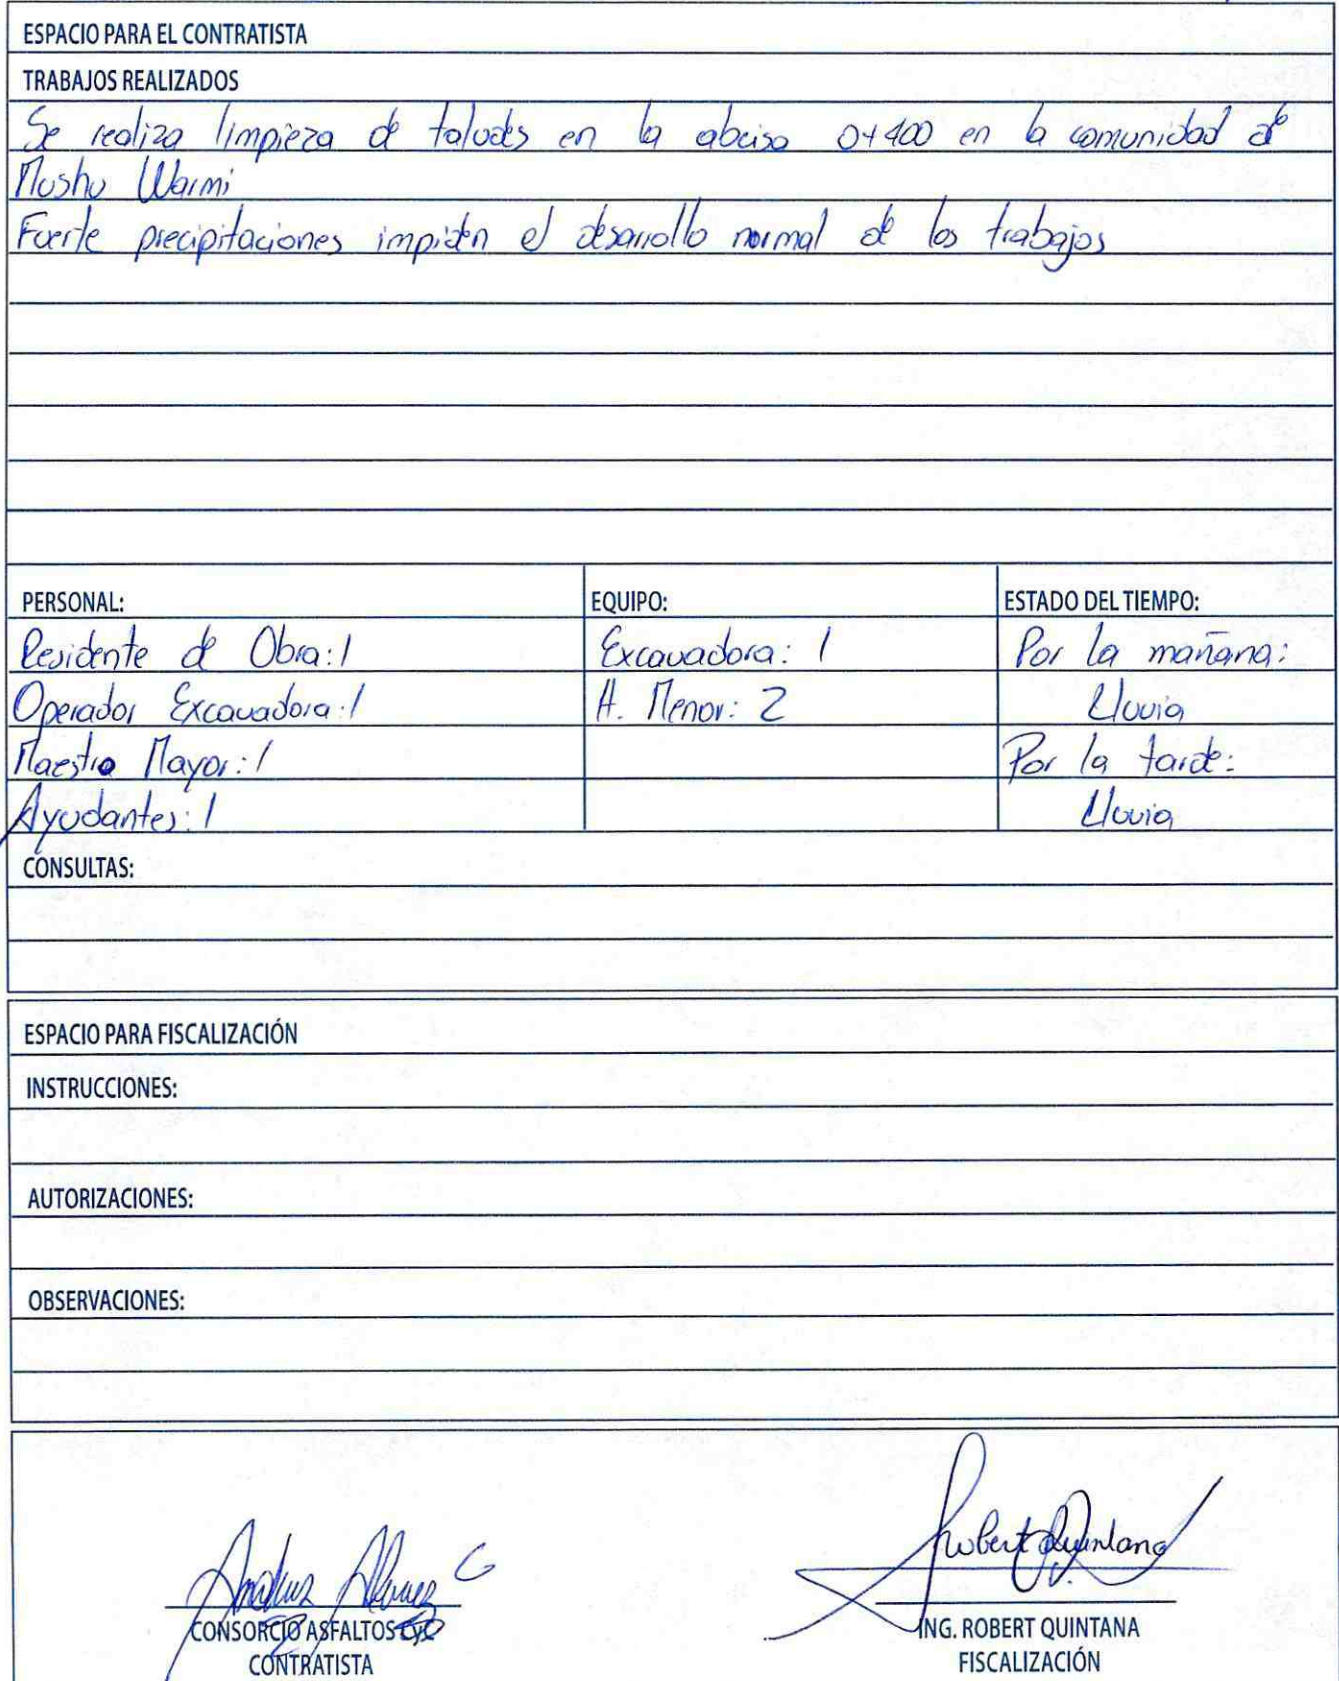 ESPACIO PARA EL CONTRATISTA
TRABAJOS REALIZADOS
Se realiza limpieza de taludes en la abcisa 0+400 en la comunidad de
Mushu Warmi
Fuerte precipitaciones impiden el desarrollo normal de los trabajos
PERSONAL: EQUIPO: ESTADO DEL TIEMPO:
Residente de Obra: 1 Excavadora: 1 Por la mañana:
Operador Excavadora: 1 H. Menor: 2 Lluvia
Maestro Mayor: 1 Por la tarde:
Ayudantes: 1 Lluvia
CONSULTAS:
ESPACIO PARA FISCALIZACIÓN
INSTRUCCIONES:
AUTORIZACIONES:
OBSERVACIONES:
Robert Quintana
CONSORCIO ASFALTOS CyC ING. ROBERT QUINTANA
CONTRATISTA FISCALIZACIÓN